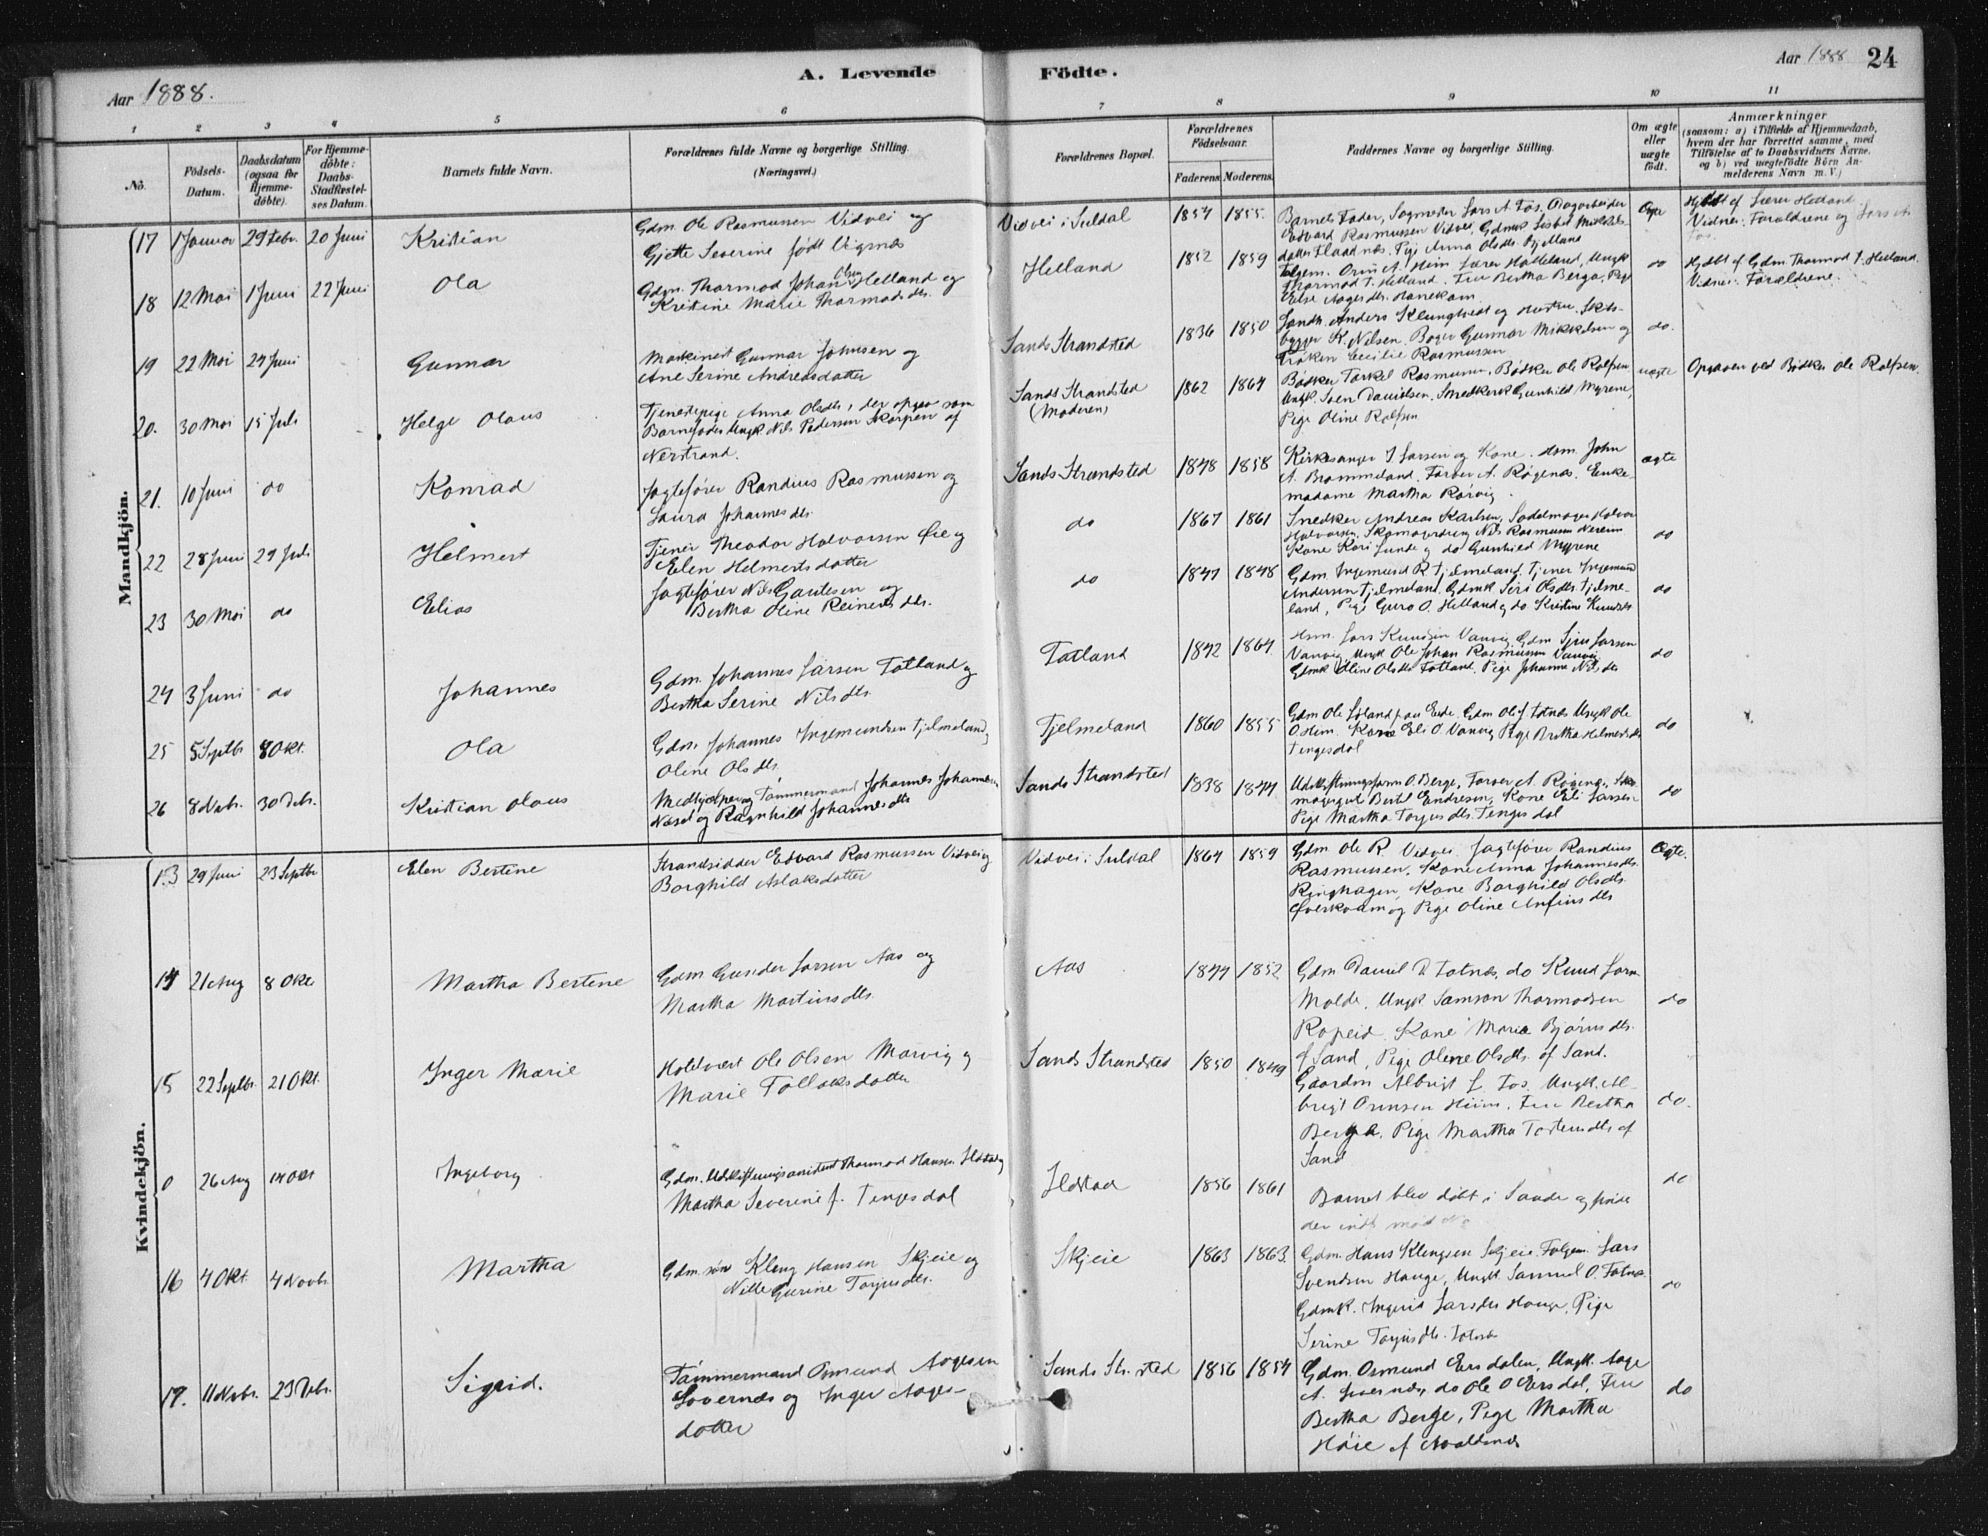 Aar 1888.
A. Levende
Födte.
Aar 1888
24
1 2 3 4 5 6 7 8 9 10 11
No.
Födsels-Datum.
Daabsdatum (ogsaa for Hjemme-döbte).
For Hjemme-döbte: Daabs-Stadfæstel-ses Datum.
Barnets fulde Navn.
Forældrenes fulde Navne og borgerlige Stilling.
(Næringsvei.)
Forældrenes Bopæl.
Forældrenes Födselsaar.
Faderens. Moderens.
Faddernes Navne og borgerlige Stilling.
Om ægte eller uægte födt.
Anmærkninger
(saasom: a) i Tilfælde af Hjemmedaab, hvem der har forrettet samme, med Tilföielse af to Daabsvidners Navne, og b) ved uægtefödte Börn Anmelderens Navn m. V.)
Mandkjön.
17 1 Januar 29 Febr. 20 Juni Kristian
Gdm. Ole Rasmussen Vidvei og
Gjette Severine født Vignæs
Vidvei i Suldal 1854 1855.
Barnets Fader, Sagmester Lars A. Fos, Dagarbeider
Edvard Rasmussen Vidvei, Gdmk. Lisbet Mikkels-
datter Flaadnæs, Pige Anna Olsdtr. Bjelland
Ægte
Hjdbt af Lærer Helland
Vidner: Forældrene og Lars A.
Fos.
18 12 Mai 1 Juni 22 Juni Ola
Gdm. Thormod Johan Olsen Helland og
Kristine Marie Thormodsdtr.
Helland 1852 1859
Følgem. Orm A. Heim, Lærer Hatteland, Ungk.
Thormod T. Helland. Fru Bertha Berge, Pige
Else Aagesdtr. Hanekam
do
Hjdbt af Gdm. Thormod T. Helland.
Vidner: Forældrene.
19 22 Mai 24 Juni Gunnar
Maskinist Gunnar Johnsen og
Ane Serine Andreasdatter
Sands Strandsted 1836 1850
Landh. Anders Klungtvedt og Hustru. Skibs-
bygger K. Nilsen. Bager Gunnar Mikkelsen og
Frøken Cecilie Rasmussen
do.
20. 30 Mai 15 Juli Helge Olaus
Tjenestepige Anna Olsdtr., der opgav som
Barnefader Ungk. Nils Pedersen Skorpen af
Nerstrand.
Sands Strandsted
(Moderen)
1862 1864
Bødker Torkel Rasmussen, Bødker Ole Rolfsen,
Ungk. Sven Davidsen, Snedkersk. Gunhild Myrene,
Pige Oline Rolfsen
uægte
Opgaven ved Bødker Ole Rolfsen.
21. 10 Juni do Konrad
Jagtefører Randius Rasmussen og
Laura Johannesdtr.
Sands Strandsted 1848 1858
Kirkesanger I. Larsen og Kone. Hsm. John
A. Brommeland, Farver A. Røgenæs, Enke-
madame Martha Rørvig.
ægte
22 28 Juni 29 Juli Helmert
Tjener Theodor Halvorsen Øie og
Elen Helmertsdatter
do 1867 1861
Snedker Andreas Karlsen, Sadelmager Halvor
Halvorsen, Skomagerdreng Nils Rasmussen Nereim
Kone Kari Lunde og do Gunhild Myrene
do
23 30 Mai do Elias
Jagtefører Nils Gautesen og
Bertha Oline Reinertsdtr.
do 1847 1848
Gdm. Ingemund R. Tjelmeland, Tjener Ingemund
Andersen Tjelmeland, Gdmk Siri Olsdtr. Tjelme-
land, Pige Guro O. Helland og do Kristine Knudsdtr
do
24 3 Juni do Johannes
Gdm. Johannes Larsen Fatland og
Bertha Serine Nilsdtr.
Fatland 1842 1864
Hsm. Lars Knudsen Vanvig Gdm Sjur Larsen
Vanvig, Ungk Ole Johan Rasmussen Vanvig
Gdmk Oline Olsdtr Fatland, Pige Johanne Nilsdtr
do
25 5 Septbr 8 Okt. Ola
Gdm. Johannes Ingemundsen Tjelmeland,
Oline Olsdtr.
Tjelmeland 1860 1855
Gdm Ole Løland paa Eide, Gdm Ole J. Fatnes Ungk Ole
O Heim, Kone Eli O. Vanvig Pige Bertha Helmertsdtr
Tengesdal
do
26 8 Novbr. 30 Debr. Kristian Olaus
Medhjelper og Tømmermand Johannes Johannessen
Næset og Ragnhild Johannesdtr
Sands Strandsted 1838 1844
Udskiftningsform O. Berge, Farver A. Røgenes, Sko-
magersvd. Bertel Endresen, Kone Eli Larsen
Pige Martha Torgrisdtr. Tengesdal
do
Kvindekjön.
13 29 Juni 23 Septbr Elen Bertine
Strandsidder Edvard Rasmussen Vidvei og
Borghild Aslaksdatter
Vidvei i Suldal 1864 1859
Gdm Ole R. Vidvei. Jagtefører Randius
Rasmussen, Kone Anna Johannesdtr.
Ringhagen, Kone Borghild Olsdtr.
Øverkvam og Pige Oline Anfinsdtr
Ægte.
14 21 Aug 8 Okt Martha Bertine
Gdm Gunder Larsen Aas og
Martha Martinsdtr.
Aas 1844 1852
Gdm Daniel D. Fatnæs, do Knud Larsen
Molde, Ungk Samson Thormodsen
Ropeid. Kone Maria Bjørnsdtr.
af Sand, Pige Oline Olsdtr. af Sand.
do
15 22 Septbr. 21 Okt. Inger Marie
Hotelvært Ole Olsen Marvig og
Marie Tollaksdatter
Sands Strandsted 1850 1849
Gaardm Albrigt L. Fos, Ungk. Al-
brigt Ormsen Hiim. Fru Bertha
Berge. Pige Martha Tostensdtr af
Sand
do.
0 26 Aug 14 Okt Ingeborg
Gdm. Udskiftningsassistent Thormod Hansen Ilstad og
Martha Severine f. Tengesdal
Ilstad 1856 1861
Barnet blev døbt i Saude og findes
der indt med No
do
16 4 Okt. 4 Novbr. Martha
Gdm. søn Kleng Hansen Skjeie og
Nille Gurine Torgrisdtr.
Skjeie 1863 1863.
Gdm. Hans Klengsen Skjeie, Følgem. Lars
Svendsen Hauge, Ungk. Samuel O. Fatnes
Gdmk. Ingerid Larsdtr Hauge, Pige
Serine Torgrisdtr. Fatnes
do
17. 11 Novbr. 23 Debr. Sigrid.
Tømmermand Osmund Aagesen
Lovernæs og Inger Aages-
datter
Sands Str.sted 1856 1854
Gdm. Osmund Eersdalen, Ungk. Aage
A. Lovernæs, do Ole O Ersdal, Fru
Bertha Berge, Pige Martha
Høie af Avaldsnæs
do